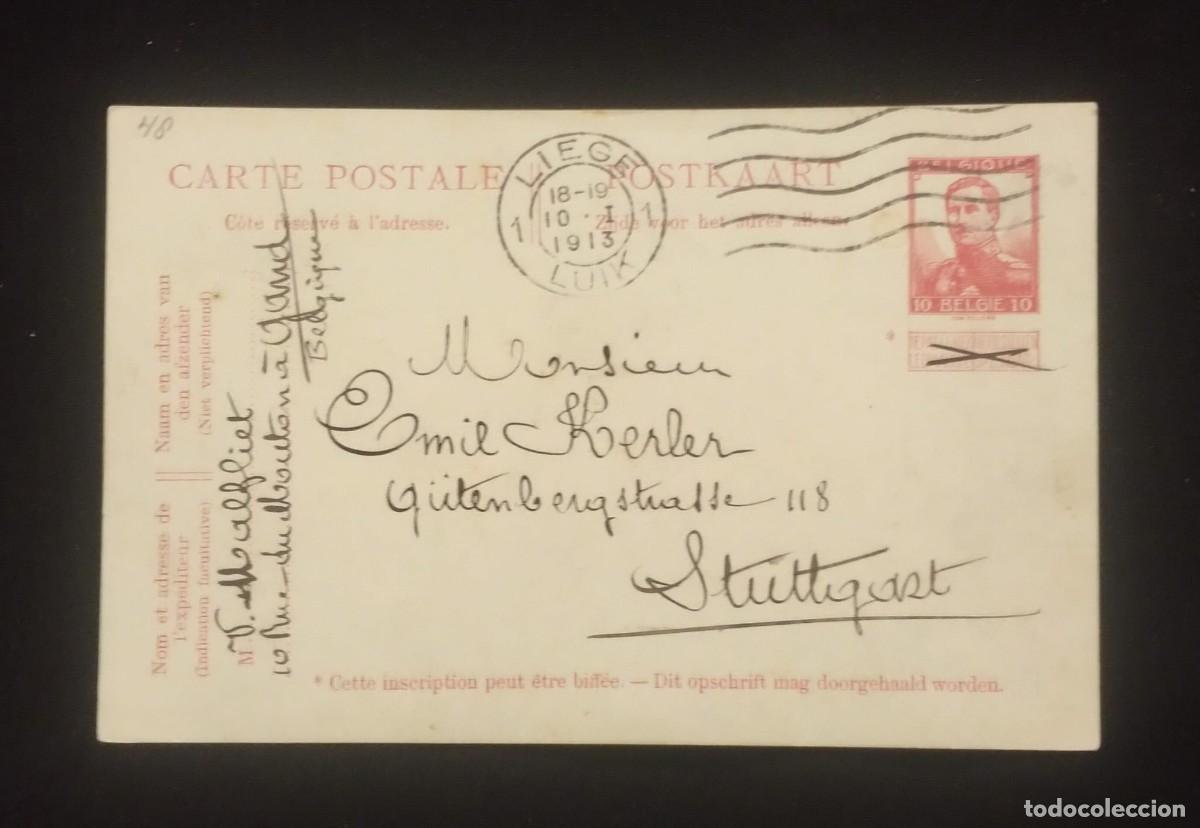 48
CARTE POSTALE POSTKAART
Côté réservé à l'adresse. Zijde voor het adres alleen.
LIEGE
1 18-19 1
10 · I
1913
LUIK
BELGIQUE
10 BELGIË 10
*
Monsieur
Emil Kerler
Gütenbergstrasse 118
Stüttgart
Nom et adresse de l'expéditeur
(Indication facultative)
Naam en adres van den afzender
(Niet verplichtend)
M V. Malfliet
10 Rue du Mouton à Gand
Belgique
* Cette inscription peut être biffée. — Dit opschrift mag doorgehaald worden.
todocoleccion